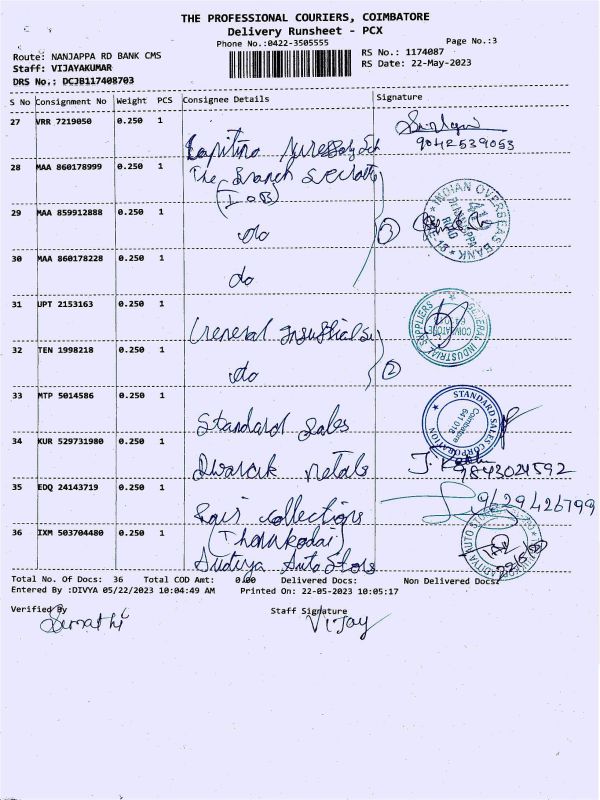 THE PROFESSIONAL COURIERS, COIMBATORE
Delivery Runsheet - PCX
Phone No.:0422-3505555
Page No.:3
Route: NANJAPPA RD BANK CMS
RS No.: 1174087
Staff: VIJAYAKUMAR
RS Date: 22-May-2023
DRS No.: DCJB117408703
S No Consignment No Weight PCS Consignee Details Signature
27 VRR 7219050 0.250 1
9042539053
28 MAA 860178999 0.250 1
The Branch
(IOB)
29 MAA 859912888 0.250 1
do
3
INDIAN OVERSEAS BANK
NANJAPPA ROAD
30 MAA 860178228 0.250 1
do
31 UPT 2153163 0.250 1
General Industrial
GENERAL INDUSTRIAL SUPPLIERS
COIMBATORE
32 TEN 1998218 0.250 1
do
2
33 MTP 5014586 0.250 1
Standard Sales
STANDARD SALES CORPORATION
Coimbatore
641 018
34 KUR 529731980 0.250 1
Dwarak Metals
9843021592
35 EDQ 24143719 0.250 1
collections
9629426799
36 IXM 503704480 0.250 1
Auto Stors
ADITYA AUTO STORES
Total No. Of Docs: 36 Total COD Amt: 0.00 Delivered Docs: Non Delivered Docs:
Entered By :DIVYA 05/22/2023 10:04:49 AM Printed On: 22-05-2023 10:05:17
Verified By
Staff Signature
Sumathi
Vijay